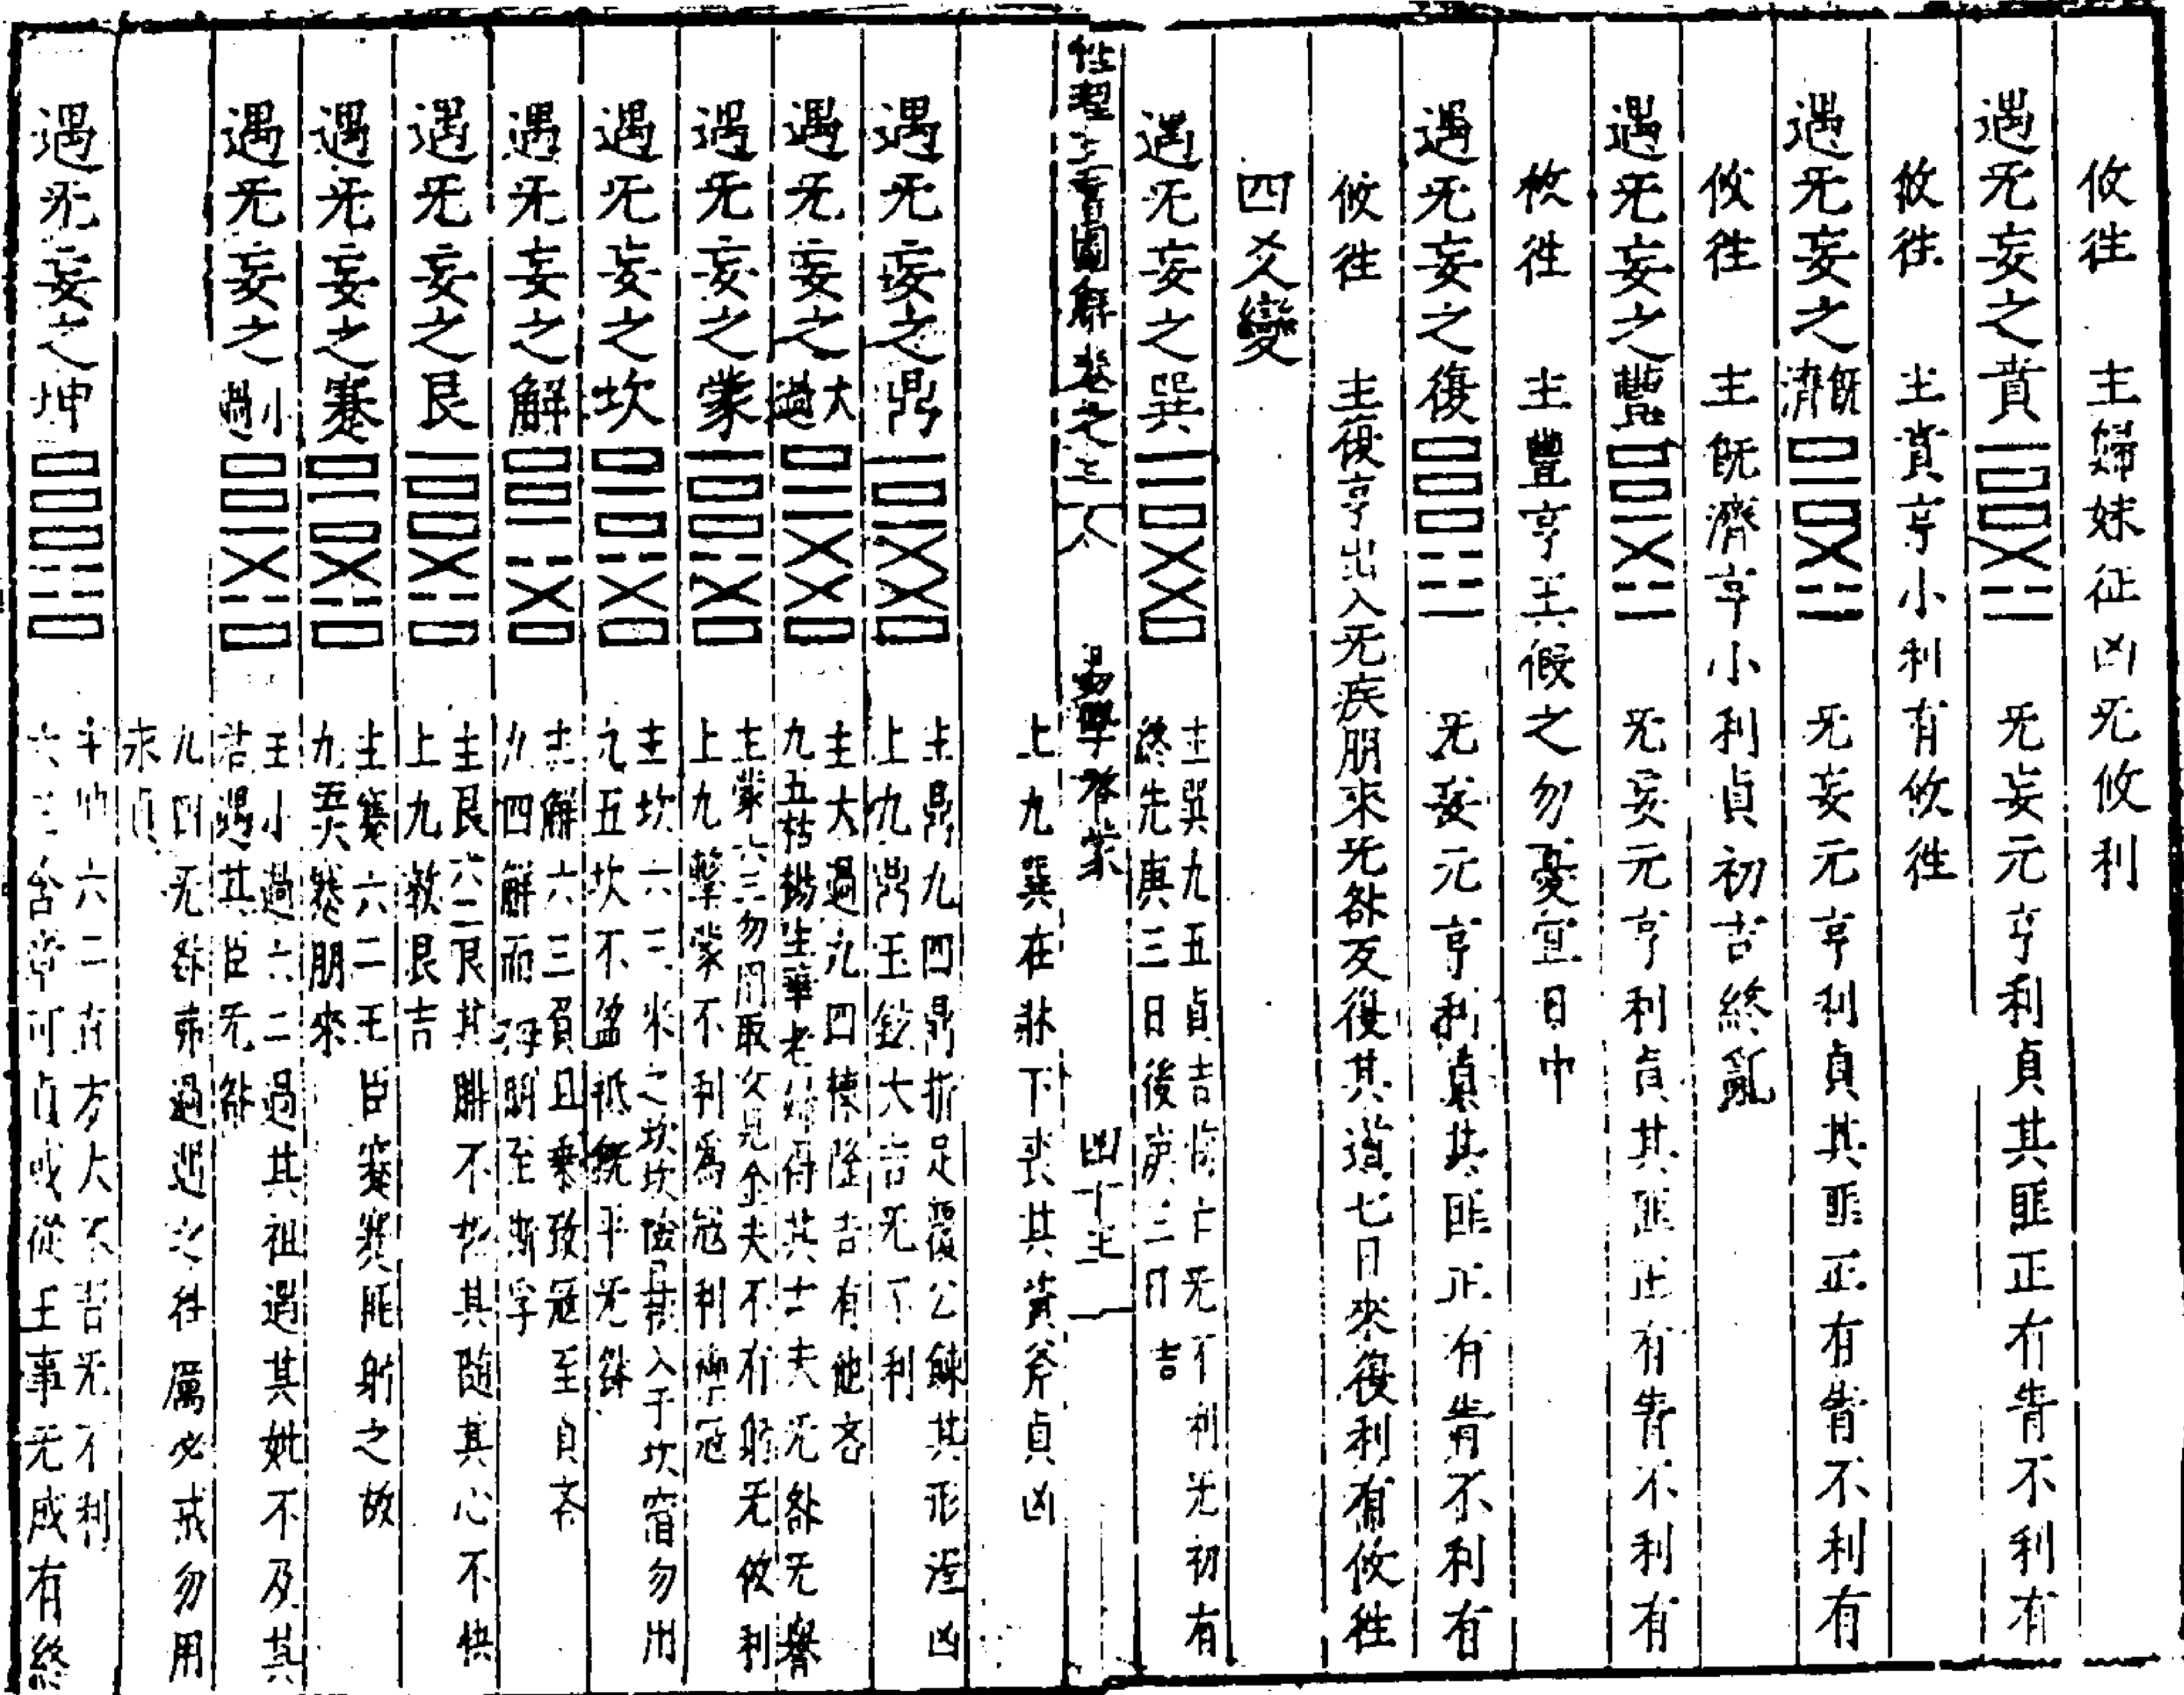 攸徃　主歸妹征凶无攸利
遇无妄之賁　无妄元亨利貞其匪正有眚不利有
攸徃　主賁亨小利有攸徃
遇无妄之旣濟　无妄元亨利貞其匪正有眚不利有
攸徃　主旣濟亨小利貞初吉終亂
遇无妄之豐　无妄元亨利貞其匪正有眚不利有
攸徃　主豐亨王假之勿憂宜日中
遇无妄之復　无妄元亨利貞其匪正有眚不利有
攸徃　主復亨出入无疾朋來无咎反復其道七日來復利有攸徃
四爻變
遇无妄之巽　主巽九五貞吉悔亡无不利无初有
終先庚三日後庚三日吉
性理三書圖解卷之三　易學啓蒙　四十
上九巽在牀下喪其資斧貞凶
遇无妄之鼎　主鼎九四鼎折足覆公餗其形渥凶
上九鼎玉鉉大吉无不利
遇无妄之大過　主大過九四棟隆吉有他吝
九五枯楊生華老婦得其士夫无咎无譽
遇无妄之蒙　主蒙六三勿用取女見金夫不有躬无攸利
上九擊蒙不利爲寇利禦寇
遇无妄之坎　主坎六三來之坎坎險且枕入于坎窞勿用
九五坎不盈祗旣平无咎
遇无妄之解　主解六三負且乘致寇至貞吝
九四解而拇朋至斯孚
遇无妄之艮　主艮六二艮其腓不拯其隨其心不快
上九敦艮吉
遇无妄之蹇　主蹇六二王臣蹇蹇匪躬之故
九五大蹇朋來
遇无妄之小過　主小過六二過其祖遇其妣不及其
君遇其臣无咎
九四无咎弗過遇之徃厲必戒勿用
永貞
遇无妄之坤　主坤六二直方大不吉无不利
六三含章可貞或從王事无成有終